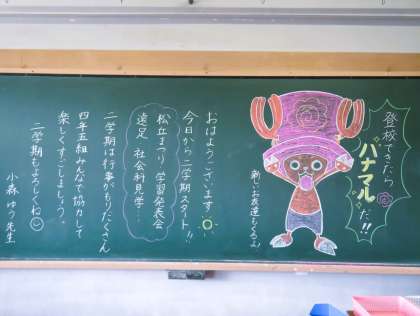 登校できたら
ハナマルだ!!
新しいお友達もくるよ♪
おはようございます。
今日から二学期スタート!!
松丘まつり 学習発表会
遠足 社会科見学…
二学期は行事がもりだくさん
四年五組みんなで協力して
楽しくすごしましょう。
二学期もよろしくね
小森ゆう先生